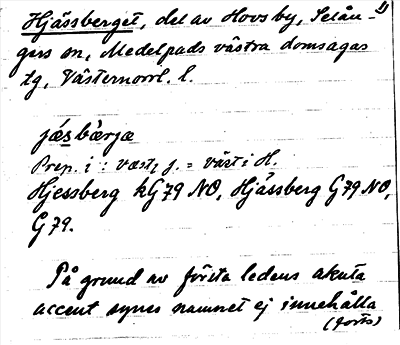 Hjässberget, del av Hovsby, Selån- 1)
gers sn, Medelpads västra domsagas
tg, Västernorrl. l.
jæ̀sbærjæ
Prep. i : væst i j. = väst i H.
Hjessberg kG79 NO, Hjässberg G79 NO,
G79.
På grund av första ledens akuta
accent synes namnet ej innehålla
(forts)